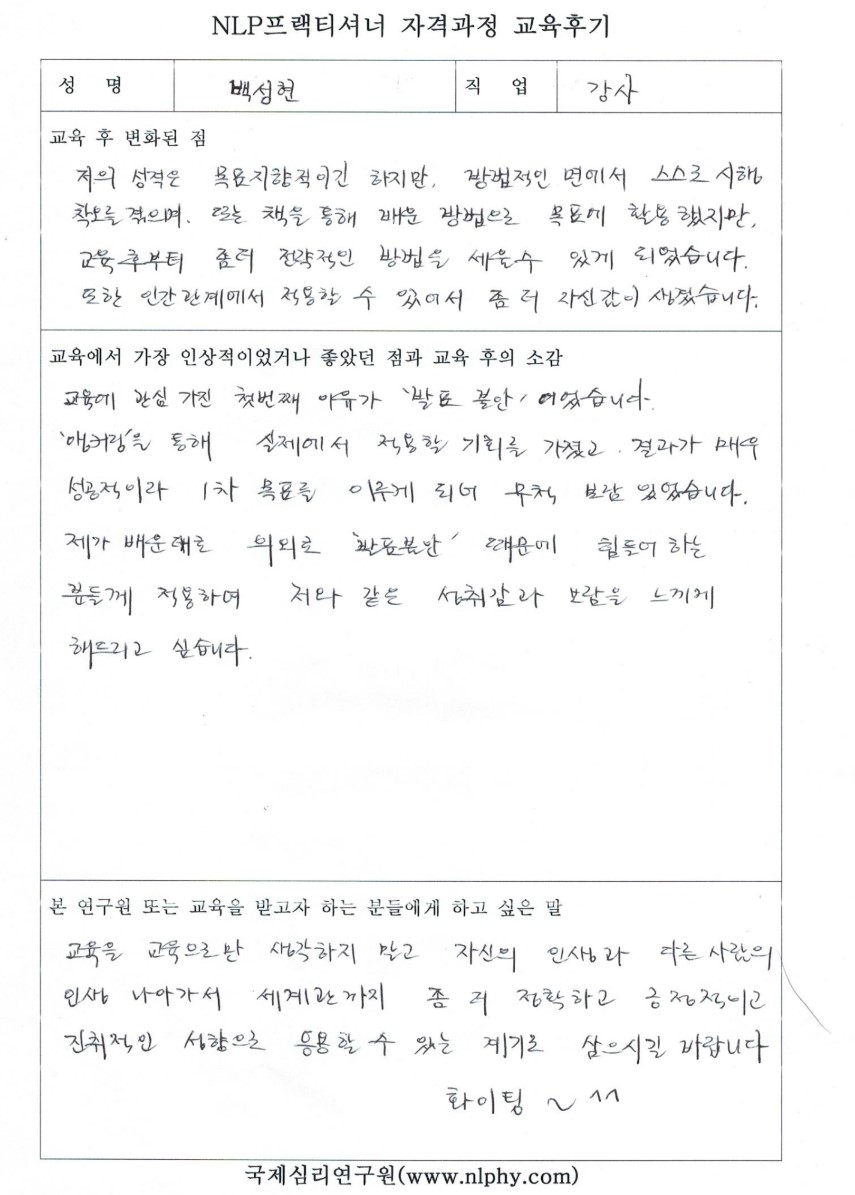 NLP프랙티셔너 자격과정 교육후기
성 명 백성현 직 업 강사
교육 후 변화된 점
저의 성격은 목표지향적이긴 하지만, 방법적인 면에서 스스로 시행
착오를 겪으며, 또는 책을 통해 배운 방법으로 목표에 활용했지만,
교육후부터 좀더 전략적인 방법을 세울수 있게 되었습니다.
또한 인간관계에서 적용할 수 있어서 좀 더 자신감이 생겼습니다.
교육에서 가장 인상적이었거나 좋았던 점과 교육 후의 소감
교육에 관심 가진 첫번째 이유가 '발표 불안' 이었습니다.
'앵커링'을 통해 실제에서 적용할 기회를 가졌고. 결과가 매우
성공적이라 1차 목표를 이루게 되어 무척 보람 있었습니다.
제가 배운대로 의외로 '발표불안' 때문에 힘들어 하는
분들께 적용하여 저와 같은 성취감과 보람을 느끼게
해드리고 싶습니다.
본 연구원 또는 교육을 받고자 하는 분들에게 하고 싶은 말
교육을 교육으로만 생각하지 말고 자신의 인생과 다른 사람의
인생 나아가서 세계관까지 좀 더 정확하고 긍정적이고
진취적인 성향으로 응용할 수 있는 계기로 삼으시길 바랍니다
화이팅 ~ ^^
국제심리연구원(www.nlphy.com)